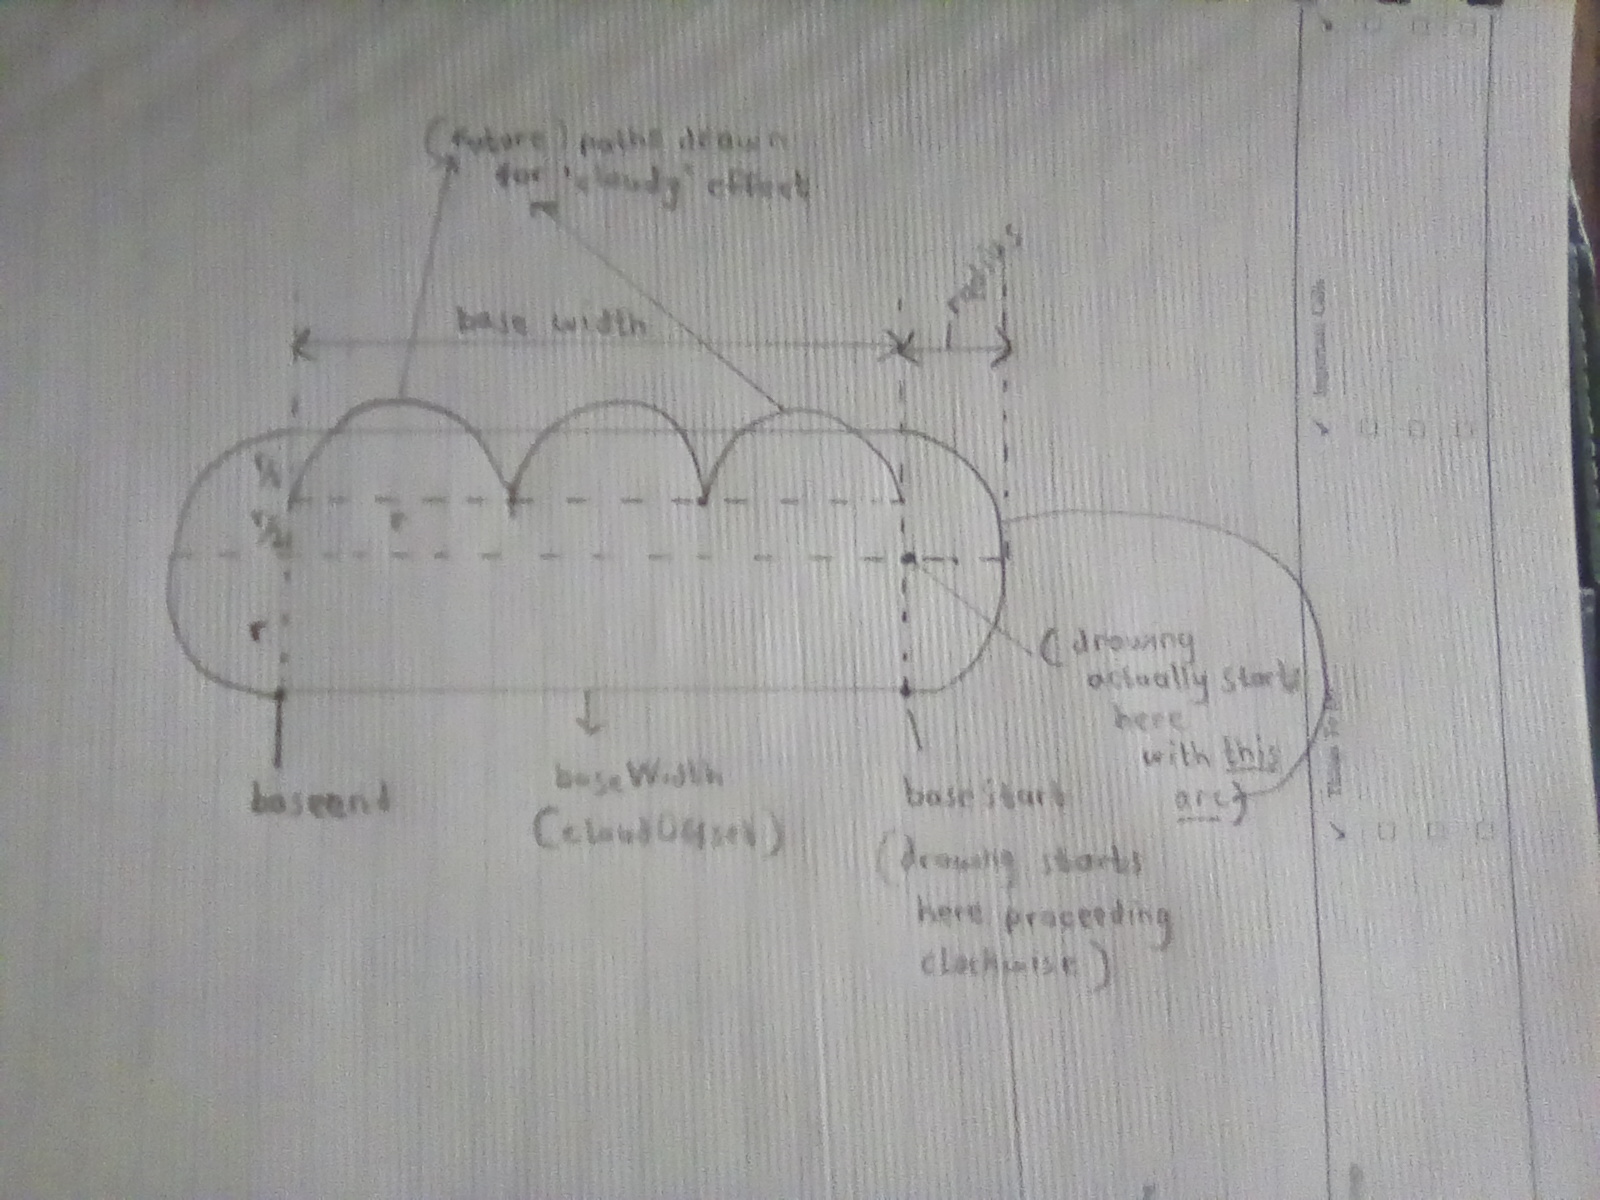 (future) paths drawn
for 'cloudy' effect
radius
base width
r/2
r/2
r
r
(drawing
actually starts
here
with this
arc)
baseend
baseWidth
(cloudOffset)
basestart
(drawing starts
here proceeding
clockwise)